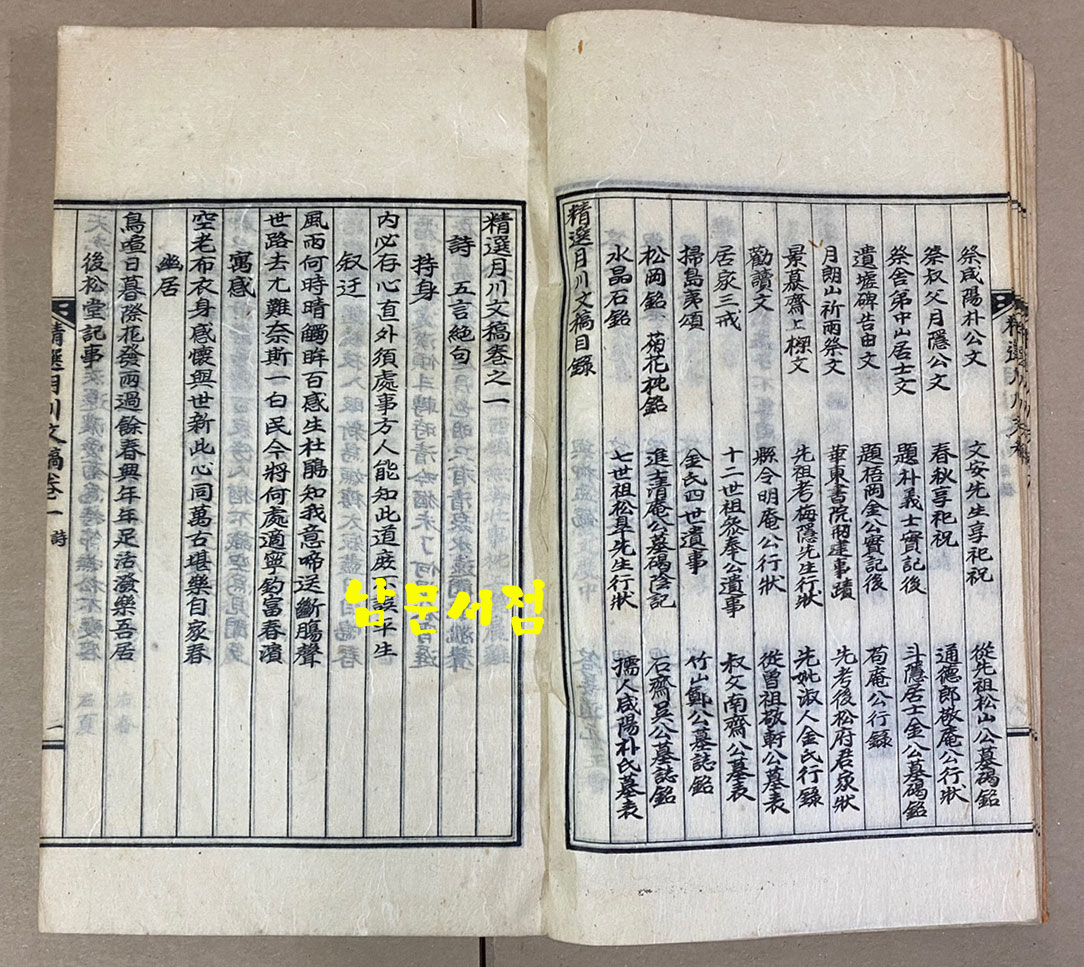 祭咸陽朴公文
文安先生享祀祝
從先祖松山公墓碣銘
祭叔父月隱公文
春秋享祀祝
通德郎敬庵公行狀
祭舍弟中山居士文
題朴義士實記後
斗隱居士金公墓碣銘
遺墟碑告由文
題梧岡金公實記後
苟庵公行錄
月朗山祈雨祭文
華東書院刱建事蹟
先考後松府君家狀
景慕齋上樑文
先祖考梅隱先生行狀
先妣淑人金氏行錄
勸讀文
縣令明庵公行狀
從曾祖敬軒公墓表
居家三戒
十二世祖參奉公遺事
叔父南齋公墓表
掃島夷頌
金氏四世遺事
竹山鄭公墓誌銘
松岡銘
菊花枕銘
進士淸庵公墓碣陰記
石齋吳公墓誌銘
水晶石銘
七世祖松皐先生行狀
孺人咸陽朴氏墓表
精選月川文稿目錄
精選月川文稿卷之一
詩 五言絕句
持身
內必存心直外須處事方人能知此道庶不誤平生
叙迂
風雨何時晴觸眸百感生杜鵑知我意啼送斷膓聲
世路去尤難奈斯一白民今將何處適寧釣富春濱
寓感
空老布衣身感懷與世新此心同萬古堪樂自家春
幽居
鳥喧日暮際花發雨過餘春興年年足活潑樂吾居
後松堂記事
精選月川文稿卷一 詩 一
남문서점